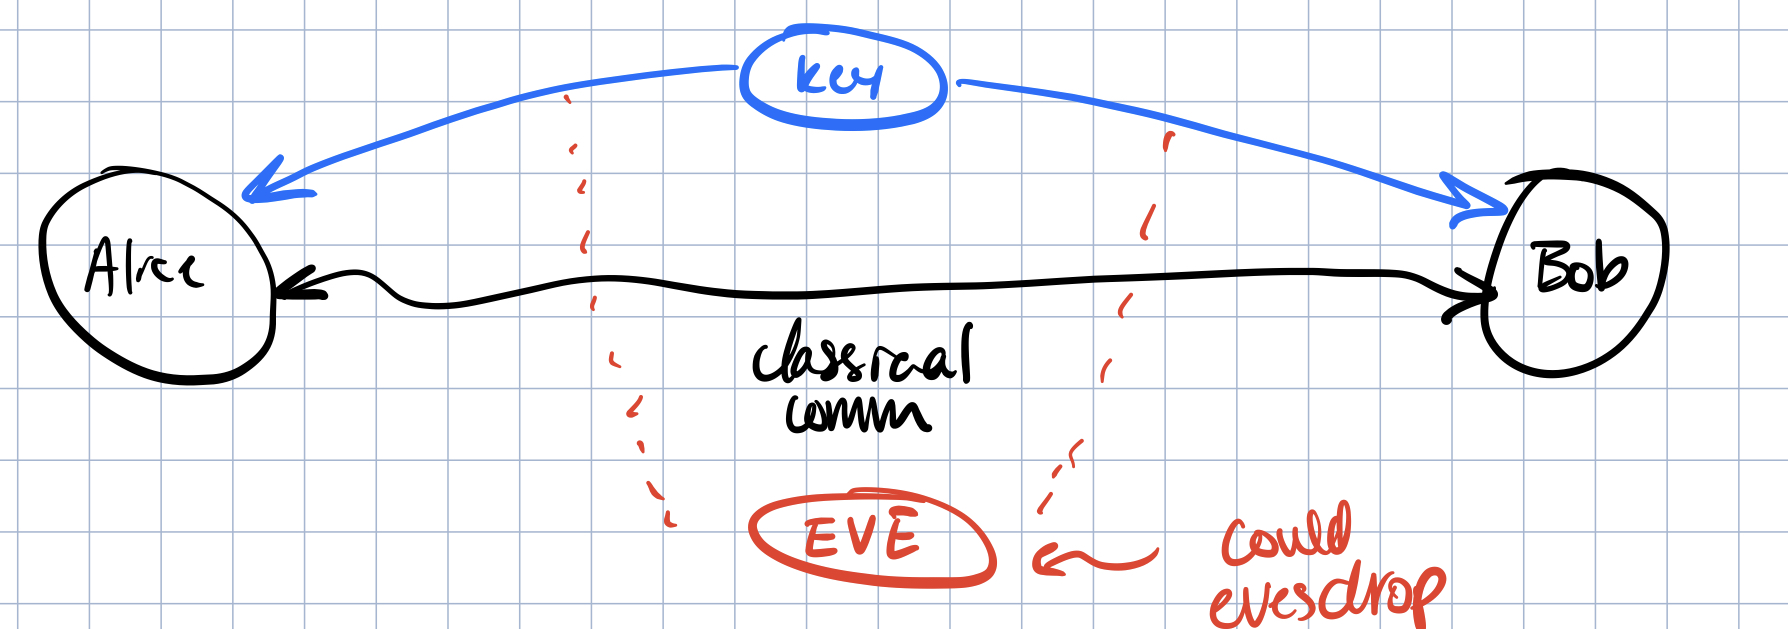 key
Alice
Bob
classical
comm
EVE
could
evesdrop